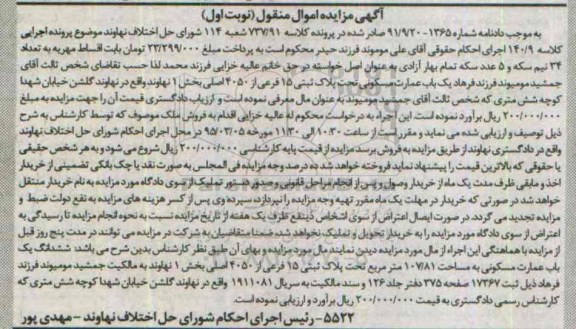 آگهی مزایده اموال منقول (نوبت اول)
به موجب دادنامه شماره ۱۳۶۵-۹۱/۹/۲۰ صادر شده در پرونده کلاسه ۷۳۷/۹۱ شعبه ۱۱۴ شورای حل اختلاف نهاوند موضوع پرونده اجرایی
کلاسه ۱۴۰/۹ اجرای احکام حقوقی آقای علی مومیوند فرزند حیدر محکوم است به پرداخت مبلغ ۲۳/۲۹۹/۰۰۰ تومان بابت اقساط مهریه به تعداد
۳۴ نیم سکه و ۵ عدد سکه تمام بهار آزادی به عنوان اصل خواسته در حق خانم عالیه خزایی فرزند محمد لذا حسب تقاضای شخص ثالث آقای
جمشید مومیوند فرزند فرهاد یک باب عمارت مسکونی تحت پلاک ثبتی ۱۵ فرعی از ۴۰۵۰ اصلی بخش ۱ نهاوند واقع در نهاوند گلشن خیابان شهدا
کوچه شش متری که شخص ثالث آقای جمشید مومیوند به عنوان مال معرفی نموده است و ارزیاب دادگستری قیمت آن را جهت مزایده به مبلغ
۲۰۰/۰۰۰/۰۰۰ ریال برآورد نموده است. این اجراء به درخواست محکوم له عالیه خزایی اقدام به فروش ملک موصوف که توسط کارشناس به شرح
ذیل توصیف و ارزیابی شده می نماید و مقرر است از ساعت ۱۰:۳۰ الی ۱۱:۳۰ مورخه ۹۵/۰۳/۰۵ در محل اجرای احکام شورای حل اختلاف نهاوند
واقع در دادگستری نهاوند از طریق مزایده به فروش برسد مزایده از قیمت پایه کارشناسی ۲۰۰/۰۰۰/۰۰۰ ریال شروع می شود و به هر شخص حقیقی
یا حقوقی که بالاترین قیمت را پیشنهاد نماید فروخته خواهد شد ده درصد وجه مزایده فی المجلس به صورت نقد یا چک بانکی تضمینی از خریدار
اخذ و مابقی ظرف مدت یک ماه از خریدار وصول و پس از انجام مراحل قانونی و صدور دستور تملیک از سوی دادگاه مورد مزایده به نام خریدار منتقل
خواهد شد در صورتی که خریدار در مهلت یک ماه مقرر تهیه وجه مزایده را نپردازد سپرده وی پس از کسر هزینه های مزایده به نفع دولت ضبط و
مزایده تجدید می گردد. در صورت ایصال اعتراض از سوی اشخاص ذینفع ظرف یک هفته از تاریخ مزایده نسبت به نحوه انجام مزایده تا رسیدگی به
اعتراض از سوی دادگاه مورد مزایده را به خریدار تحویل و تملیک نخواهد شد ضمنا متقاضیان به شرکت در مزایده می توانند در مدت پنج روز قبل
از مزایده با هماهنگی این اجراء از مال مورد مزایده دیدن نمایند مال مورد مزایده و بهای آن طبق نظر کارشناس بدین شرح می باشد: ششدانگ یک
باب عمارت مسکونی به مساحت ۱۰۷/۸۱ متر مربع تحت پلاک ثبتی ۱۵ فرعی از ۴۰۵۰ اصلی بخش ۱ نهاوند به مالکیت جمشید مومیوند فرزند
فرهاد ذیل ثبت ۱۷۳۶۷ صفحه ۳۷۵ دفتر جلد ۱۲۶ و سند مالکیت به سریال ۱۹۱۱۰۸۱ واقع در نهاوند گلشن خیابان شهدا کوچه شش متری که
کارشناس رسمی دادگستری به قیمت ۲۰۰/۰۰۰/۰۰۰ ریال برآورد و ارزیابی نموده است.
۵۵۲۲- رئیس اجرای احکام شورای حل اختلاف نهاوند - مهدی پور